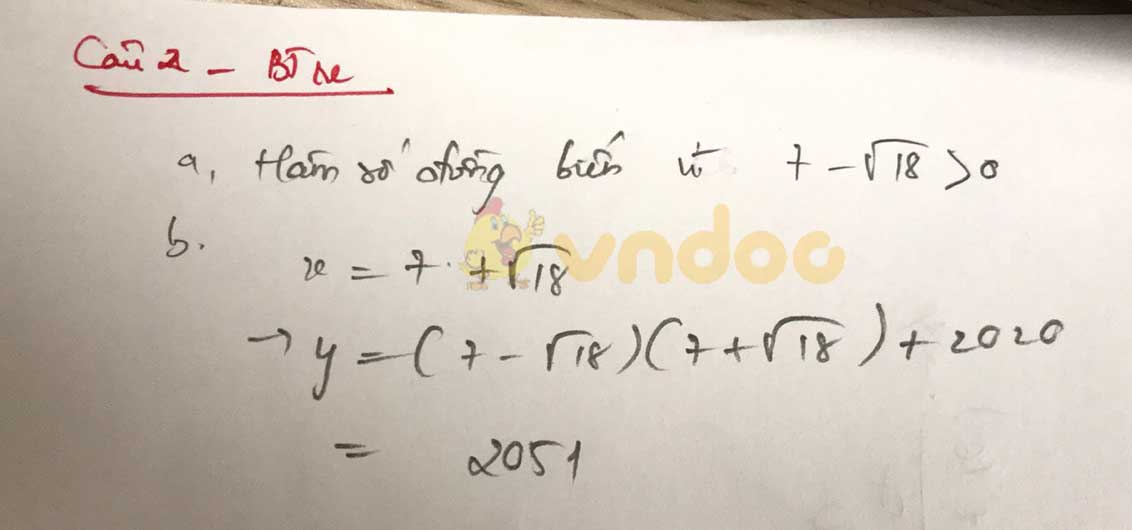 Câu 2 - BT Re
a, Hàm số đồng biến vì 7 - √18 > 0
b.
x = 7 + √18
→ y = (7 - √18)(7 + √18) + 2020
= 2051
vndoc